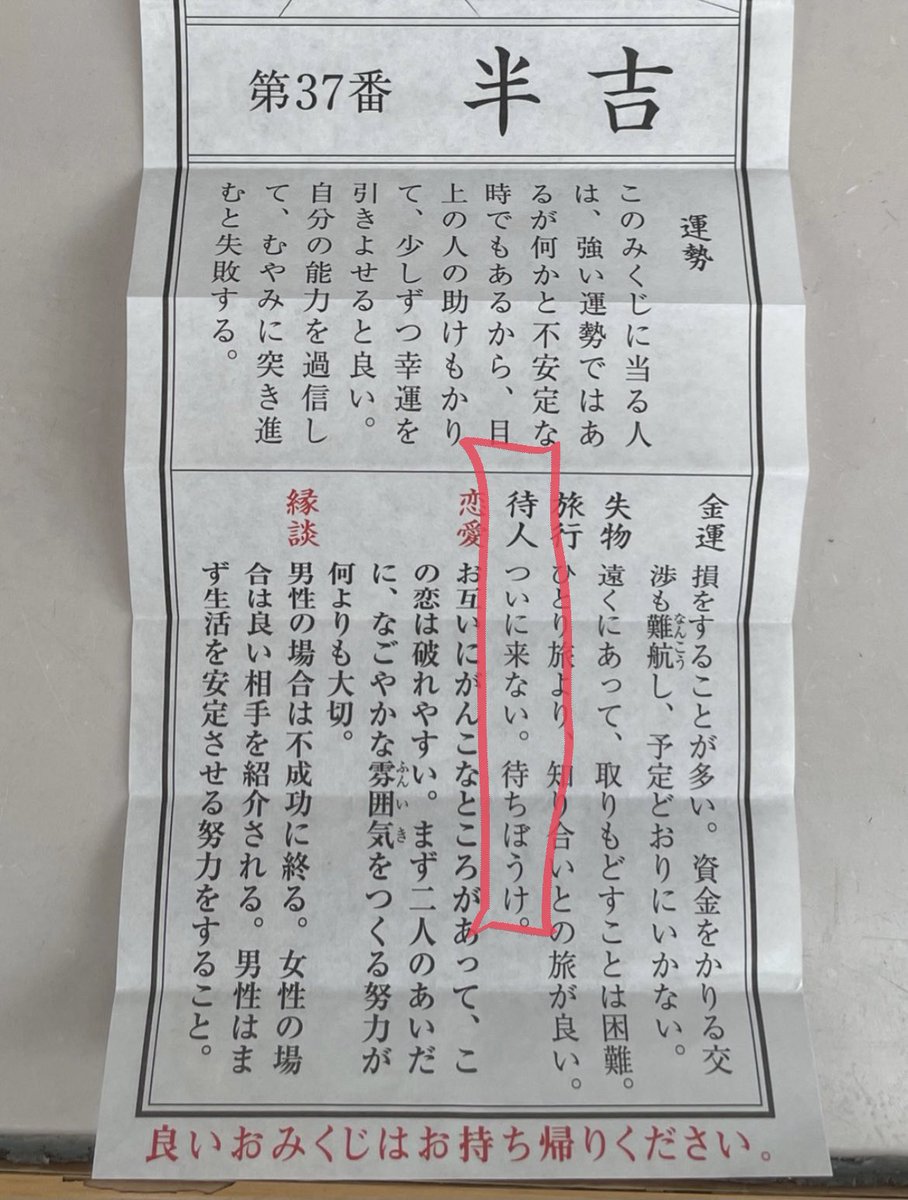 第37番 半吉
運勢
このみくじに当る人
は、強い運勢ではあ
るが何かと不安定な
時でもあるから、目
上の人の助けもかり
て、少しずつ幸運を
引きよせると良い。
自分の能力を過信し
て、むやみに突き進
むと失敗する。
金運 損をすることが多い。資金をかりる交
渉も難航し、予定どおりにいかない。
なんこう
失物 遠くにあって、取りもどすことは困難。
旅行 ひとり旅より、知り合いとの旅が良い。
待人 ついに来ない。待ちぼうけ。
恋愛 お互いにがんこなところがあって、こ
の恋は破れやすい。まず二人のあいだ
に、なごやかな雰囲気をつくる努力が
ふんいき
何よりも大切。
縁談 男性の場合は不成功に終る。女性の場
合は良い相手を紹介される。男性はま
ず生活を安定させる努力をすること。
良いおみくじはお持ち帰りください。